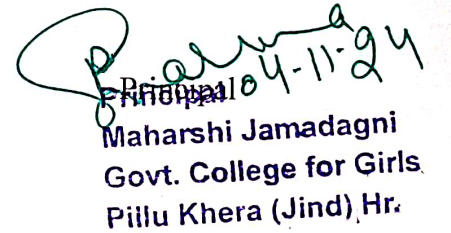 04-11-24
Principal
Principal
Maharshi Jamadagni
Govt. College for Girls
Pillu Khera (Jind) Hr.